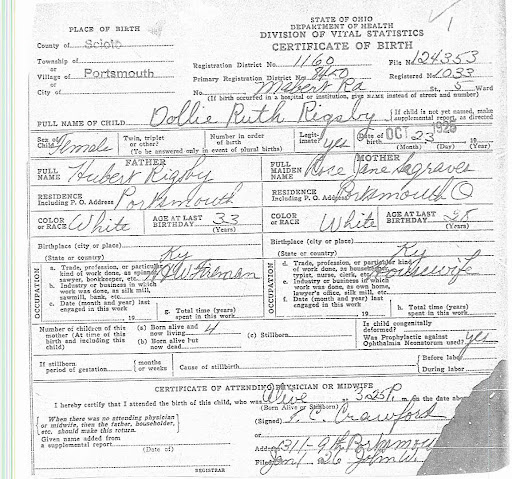 STATE OF OHIO
DEPARTMENT OF HEALTH
DIVISION OF VITAL STATISTICS
CERTIFICATE OF BIRTH
PLACE OF BIRTH
County of Scioto
Township of
or
Village of Portsmouth
or
City of
Registration District No. 1160 File No. 124353
Primary Registration District No. 8450 Registered No. 1033
No. Mabert Rd St., 5 Ward
(If birth occurred in a hospital or institution, give NAME instead of street and number)
FULL NAME OF CHILD Dollie Ruth Rigsby
If child is not yet named, make supplemental report, as directed
Sex of Child Female
Twin, triplet or other?
Number in order of birth
(To be answered only in event of plural births)
Legitimate? yes
Date of birth OCT 23 1925
(Month) (Day) (Year)
FATHER
FULL NAME Hubert Rigsby
RESIDENCE Portsmouth
Including P. O. Address
COLOR OR RACE White AGE AT LAST BIRTHDAY 33 (Years)
Birthplace (city or place)
(State or country) Ky
OCCUPATION
a. Trade, profession, or particular kind of work done, as spinner, sawyer, bookkeeper, etc.
b. Industry or business in which work was done, as silk mill, sawmill, bank, etc.
c. Date (month and year) last engaged in this work
19
g. Total time (years) spent in this work
MOTHER
FULL MAIDEN NAME Rose Jane Segraves
RESIDENCE Portsmouth O
Including P. O. Address
COLOR OR RACE White AGE AT LAST BIRTHDAY 28 (Years)
Birthplace (city or place)
(State or country) Ky
OCCUPATION
d. Trade, profession, or particular kind of work done, as housekeeper, typist, nurse, clerk, etc. Housewife
e. Industry or business in which work was done, as own home, lawyer's office, silk mill, etc.
f. Date (month and year) last engaged in this work
19
h. Total time (years) spent in this work
Number of children of this mother (At time of this birth and including this child)
(a) Born alive and now living 4
(b) Born alive but now dead
(c) Stillborn
Is child congenitally deformed?
Was Prophylactic against Ophthalmia Neonatorum used? yes
If stillborn, period of gestation
months or weeks
Cause of stillbirth
Before labor
During labor
CERTIFICATE OF ATTENDING PHYSICIAN OR MIDWIFE
I hereby certify that I attended the birth of this child, who was Alive at 3:25 P. m. on the date above
(Born Alive or Stillborn)
When there was no attending physician or midwife, then the father, householder, etc. should make this return.
(Signed) Crawford
or
Given name added from a supplemental report
(Date of)
Address 1311-9th
Filed Jan 1 26 John W.
REGISTRAR